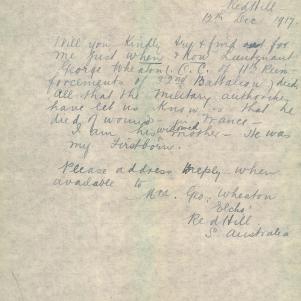 Red Hill -
13th Dec 1917.
Will you kindly try & find out for
me just when & how Lieutenant
George Wheaton (O.C. of 11th Rein-
forcements of 32nd Battalion) died
all that the military authorities
have let us know is that he
died of wounds - in France -
I am his widowed mother - He was
my Firstborn.
Please address reply - when
available to
Mrs. Geo. Wheaton
"Elcho"
Red Hill
S. Australia